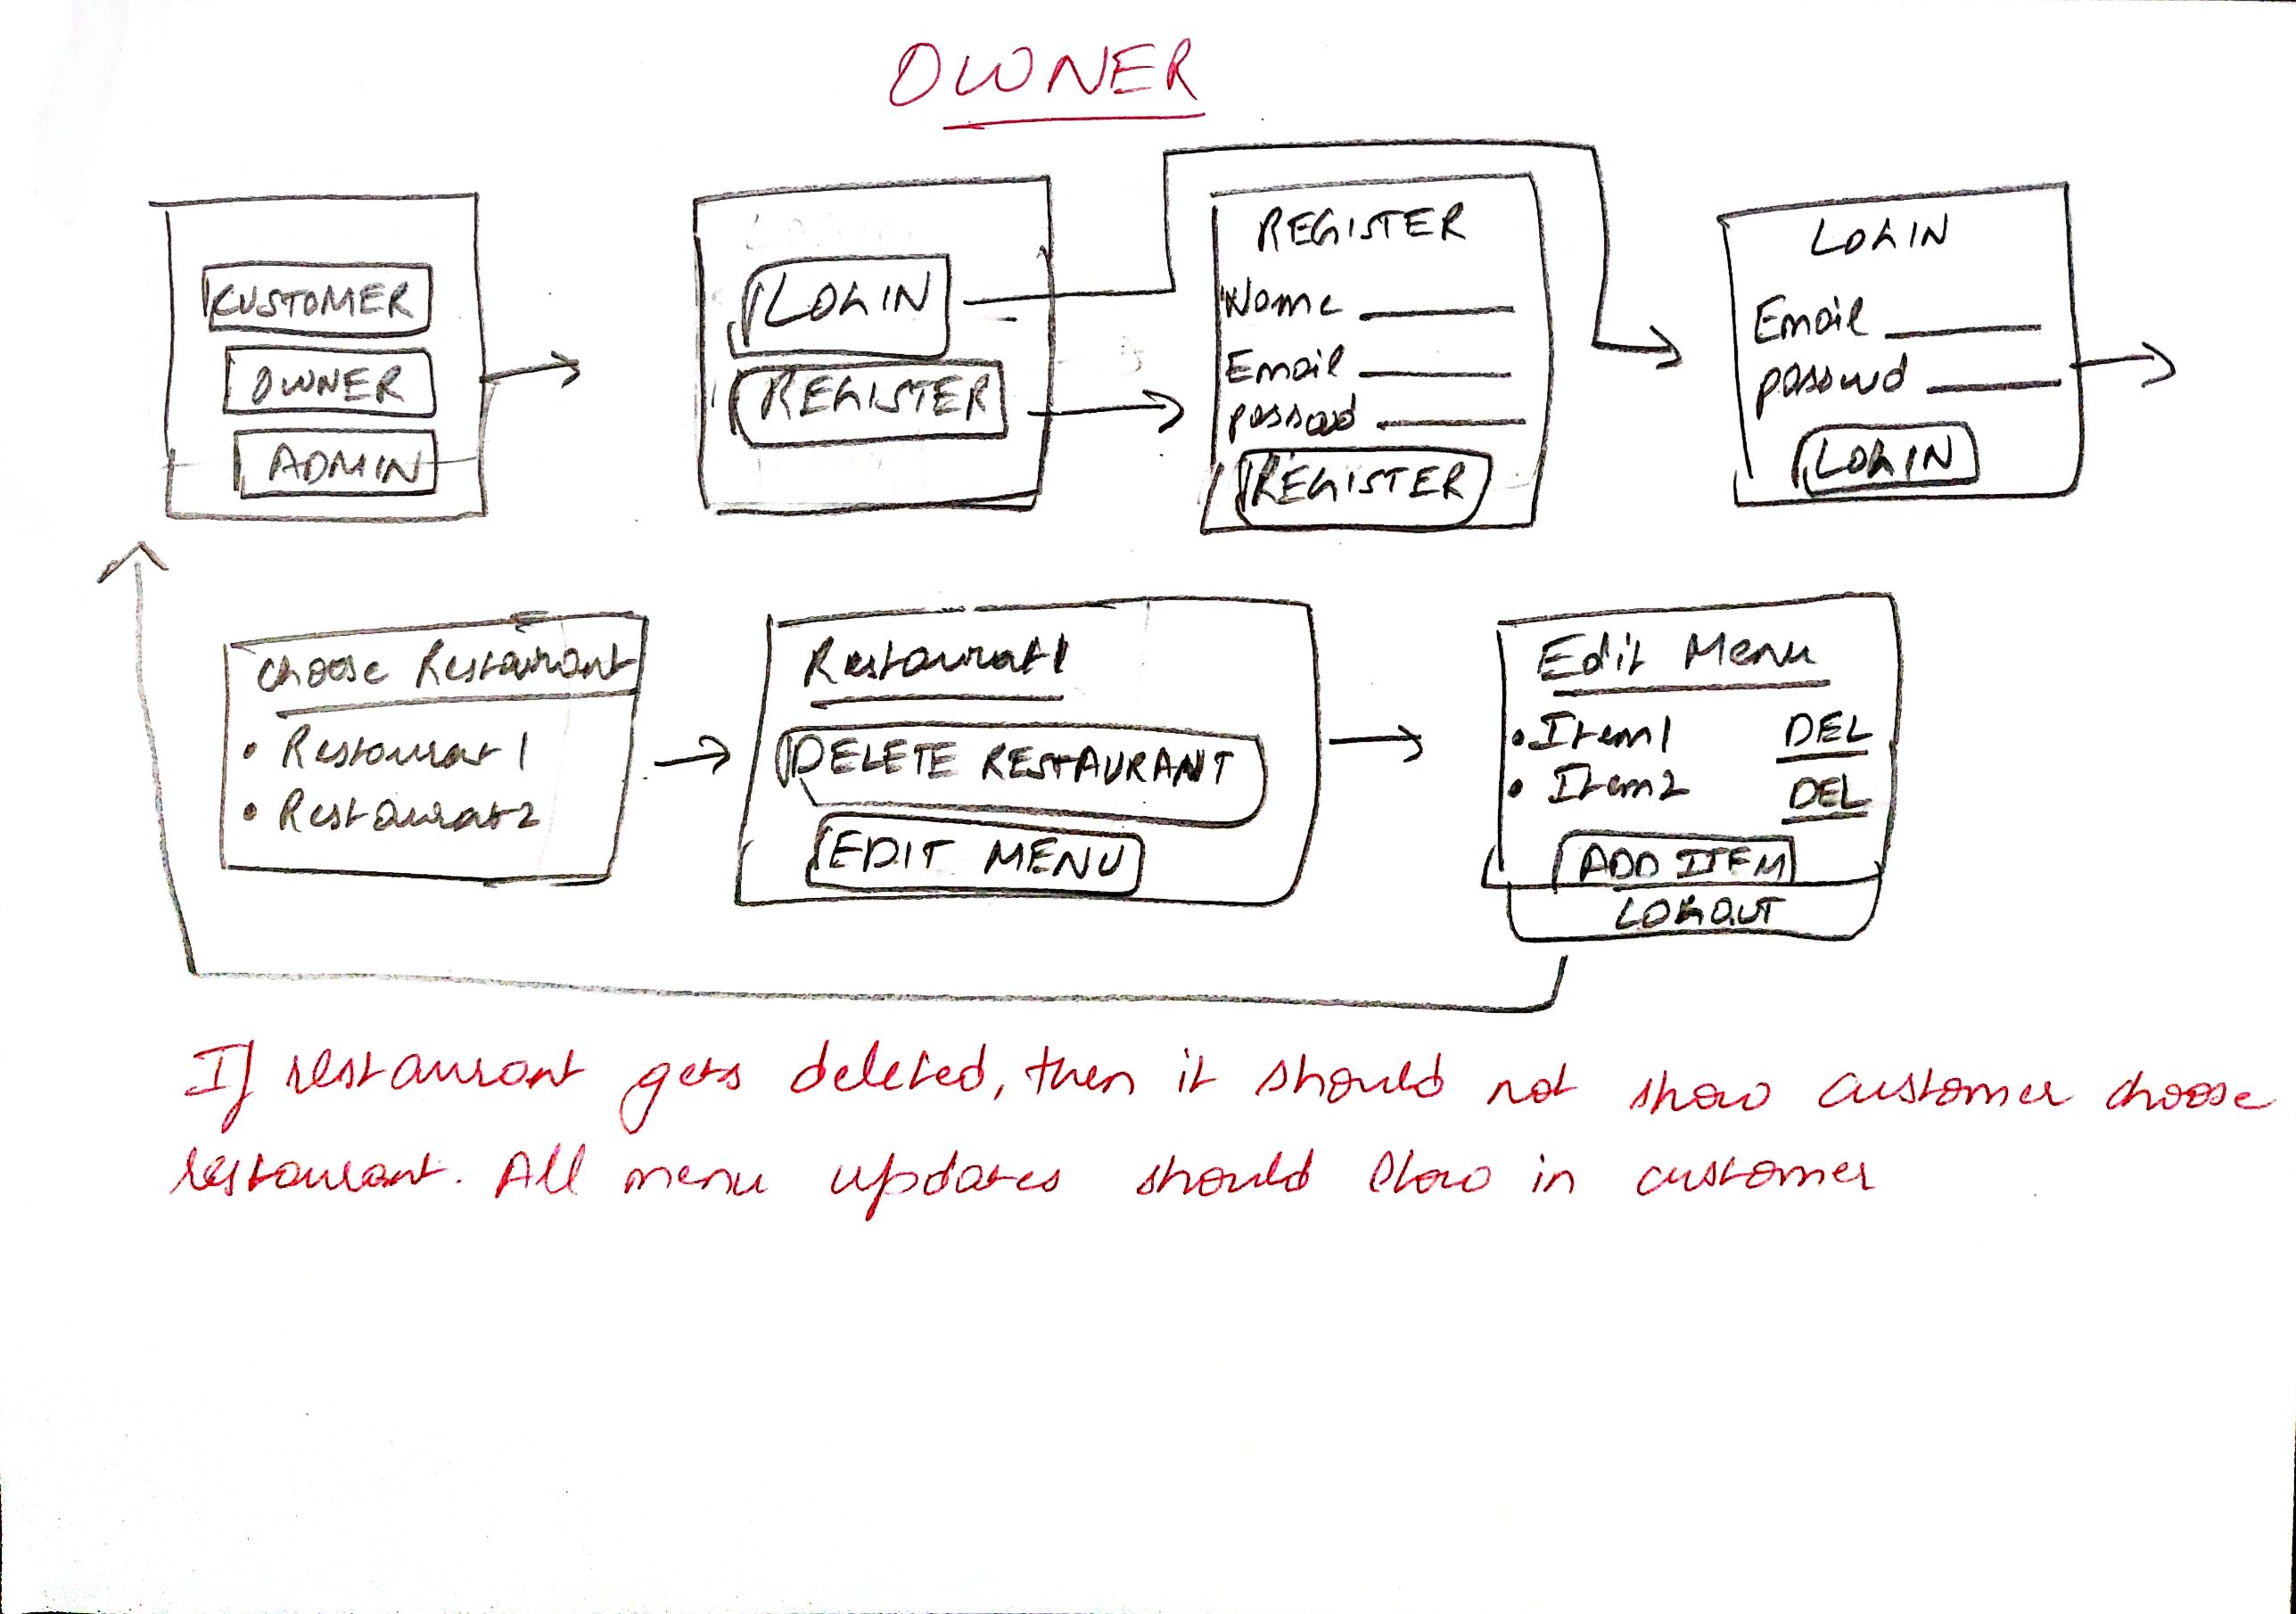 OWNER
CUSTOMER
OWNER
ADMIN
LOGIN
REGISTER
REGISTER
Name
Email
password
REGISTER
LOGIN
Email
password
LOGIN
Choose Restaurant
• Restaurat 1
• Restaurat2
Restaurat1
DELETE RESTAURANT
EDIT MENU
Edit Menu
• Item1 DEL
• Item2 DEL
ADD ITEM
LOGOUT
If restaurant gets deleted, then it should not show customer choose
restaurant. All menu updates should flow in customer